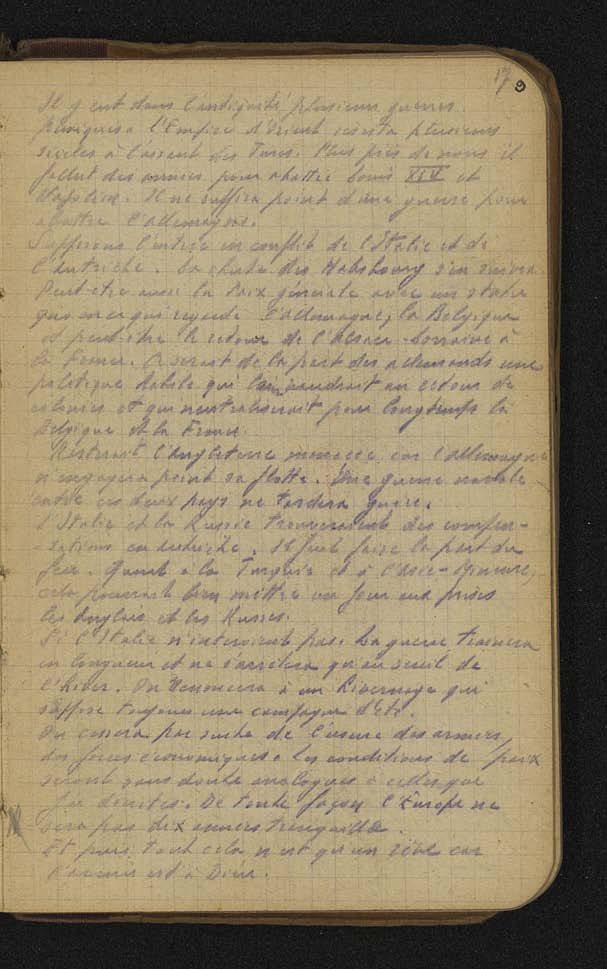 17 9
Il y eut dans l'antiquité plusieurs guerres
puniques. l'Empire d'Orient résista plusieurs
siècles à l'assaut des Turcs. Plus près de nous il
fallut des années pour abattre Louis XIV et
Napoléon. Il ne suffira point d'une guerre pour
abattre l'Allemagne.
Supposons l'entrée en conflit de l'Italie et de
l'Autriche. La chute des Habsbourg s'en suivra
Peut-être aussi la Paix générale avec un statu
quo en ce qui regarde l'Allemagne, la Belgique
et peut-être le retour de l'Alsace-Lorraine à
la France. Ce serait de la part des allemands une
politique habile qui leur vaudrait un retour de
colonies et qui neutraliserait pour longtemps la
Belgique et la France.
Resterait l'Angleterre menacée car l'Allemagne
n'engagera point sa flotte. Une guerre navale
entre ces deux pays ne tardera guère.
L'Italie et la Russie trouveraient des compen-
-sations en Autriche. Il faut faire la part du
feu. Quant à la Turquie et à l'Asie-Mineure,
cela pourrait bien mettre un jour aux prises
les Anglais et les Russes.
Si l'Italie n'intervient pas. La guerre trainera
en longueur et ne s'arrêtera qu'au seuil de
l'hiver. On renoncera à un hivernage qui
suppose toujours une campagne d'été.
On cessera par suite de l'usure des armées,
des forces économiques. Les conditions de paix
seront sans doute analogues à celles que
j'ai décrites. De toute façon l'Europe ne
sera pas dix années tranquille.
Et puis tout cela n'est qu'un rêve car
l'avenir est à Dieu.